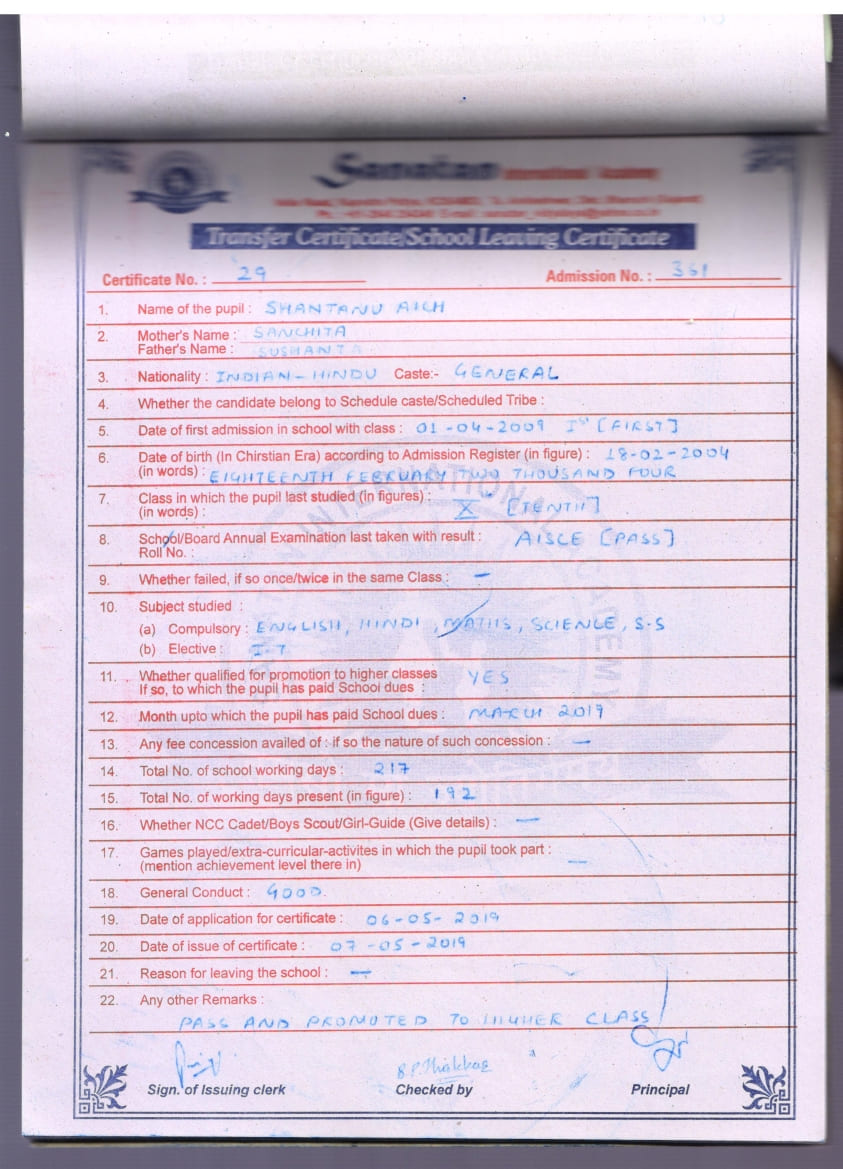 Sanatan International Academy
Transfer Certificate/School Leaving Certificate
Certificate No. : 29 Admission No. : 361
1. Name of the pupil : SHANTANU AICH
2. Mother's Name : SANCHITA
Father's Name : SUSHANTA
3. Nationality : INDIAN - HINDU Caste:- GENERAL
4. Whether the candidate belong to Schedule caste/Scheduled Tribe :
5. Date of first admission in school with class : 01-04-2009 Ist [FIRST]
6. Date of birth (In Chirstian Era) according to Admission Register (in figure) : 18-02-2004
(in words) : EIGHTEENTH FEBRUARY TWO THOUSAND FOUR
7. Class in which the pupil last studied (in figures) :
(in words) : X [TENTH]
8. School/Board Annual Examination last taken with result : AISCE [PASS]
Roll No. :
9. Whether failed, if so once/twice in the same Class : -
10. Subject studied :
(a) Compulsory : ENGLISH, HINDI, MATHS, SCIENCE, S.S
(b) Elective : I-T
11. Whether qualified for promotion to higher classes YES
If so, to which the pupil has paid School dues :
12. Month upto which the pupil has paid School dues : MARCH 2019
13. Any fee concession availed of : if so the nature of such concession : -
14. Total No. of school working days : 217
15. Total No. of working days present (in figure) : 192
16. Whether NCC Cadet/Boys Scout/Girl-Guide (Give details) : -
17. Games played/extra-curricular-activites in which the pupil took part :
(mention achievement level there in) -
18. General Conduct : GOOD.
19. Date of application for certificate : 06-05-2019
20. Date of issue of certificate : 07-05-2019
21. Reason for leaving the school : -
22. Any other Remarks :
PASS AND PROMOTED TO HIGHER CLASS
Sign. of Issuing clerk Checked by Principal
SANATAN INTERNATIONAL ACADEMY